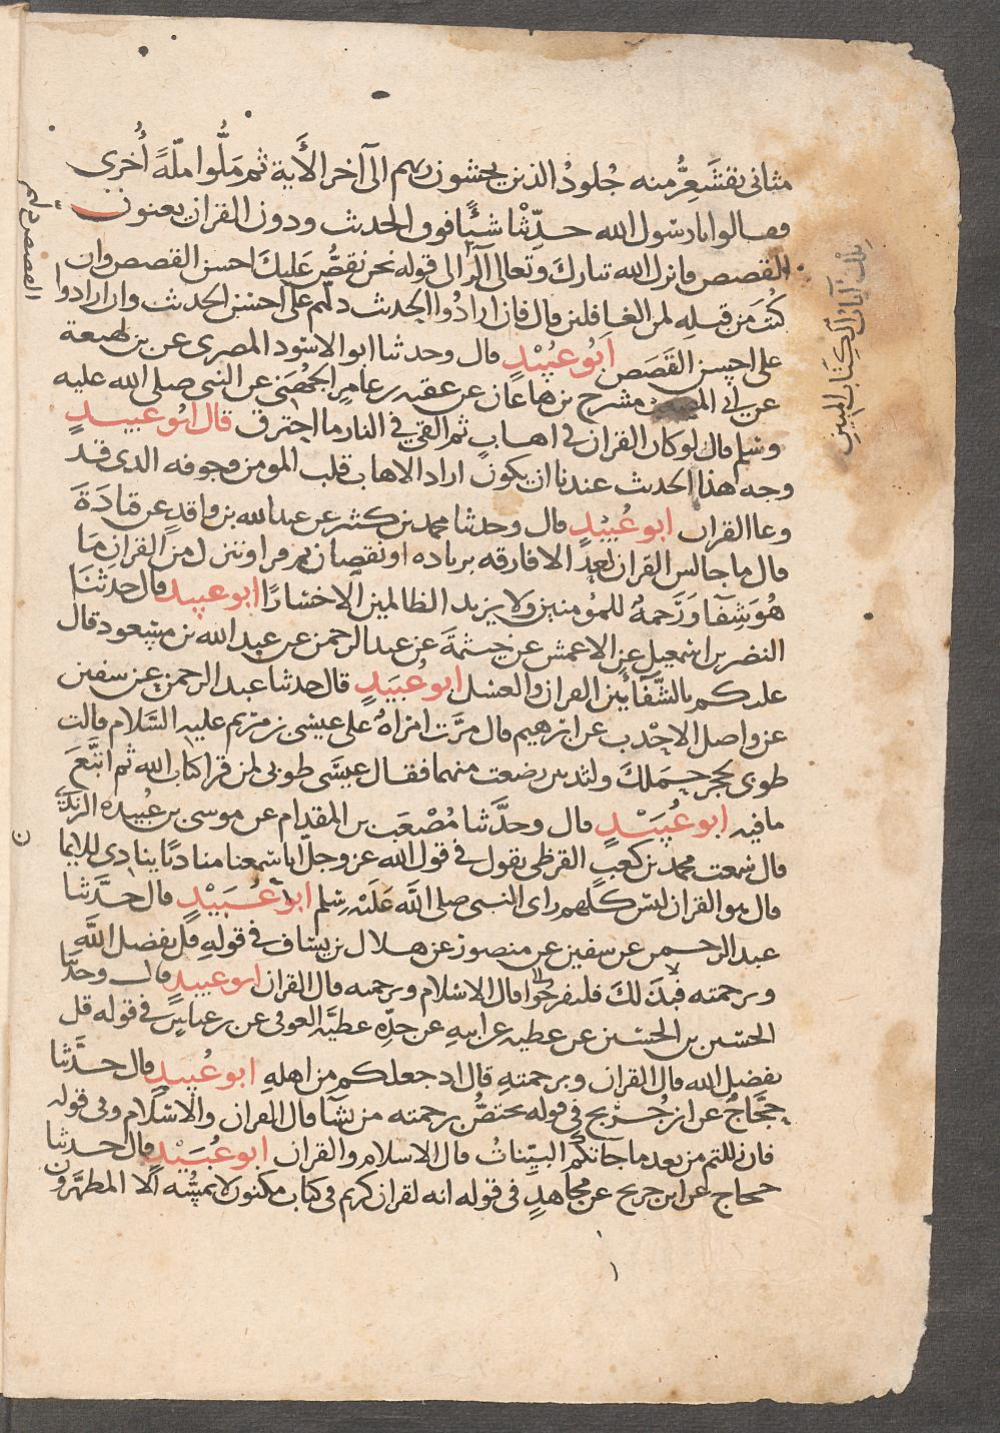 مثانى تقشَعِرُّ منه جُلودُ الذين يخشون ربهم الى آخر الأية ثم مَلُّوا ملّةً أُخرى
فقالوا يا رسول الله حدِّثْنا شيًا فوق الحديث ودون القران يعنون
القصص فانزل الله تبارك وتعالى الر الى قوله نحن نقصُّ عليكَ احسن القصص وان
كنتَ من قبله لمن الغافلين قال فان ارادُوا الحديث دلهم على احسن الحديث وان ارادوا
على احسن القَصَص ابُو عُبَيْدٍ قال وحدثنا ابو الاسود المصرى عن بن لهيعة
عن مشرح بن هاعان عن عقبه بن عامر الجهنى عن النبى صلى الله عليه
وسلم قال لو كان القران فى اهاب ثم القى فى النار ما احترق قال ابُو عبيدٍ
وجه هذا الحديث عندنا ان يكون اراد الاهاب قلب المومن وجوفه الذى قد
وعا القران ابو عُبَيْدٍ قال وحدثنا محمد بن كثير عن عبد الله بن واقدٍ عن قتادَةَ
قال ما جالس القران احد الا فارقه بزياده او نقصان ثم قرا وننزل من القران مَا
هُوَ شِفَآ وَرَحمةُ للمُومنين ولا يزيد الظالمين الا خسارًا ابو عبيد قال حدثنَا
النضر بن اسمعيل عن الاعمش عن خيثمةَ عن عبد الرحمن عن عبد الله بن مسعود قال
عليكم بالشّفائين القران والعسل ابو عُبَيَدٍ قال حدثنا عبد الرحمن عن سفين
عن واصل الاحْدب عن ابرهيم قال مرَّت امراةُ على عيسى بن مريم عليه السَّلام فقالت
طوبى لحجرٍ حملكَ ولثدىٍ رضعت منهما فقال عيسَى طوبى لمن قرا كتاب الله ثم اتَّبعَ
ما فيه ابو عُبَيْدٍ قال وحدَّثنا مُصْعَب بن المقدام عن موسى بن عُبيده الربذى
قال سمعت محمد بن كعبٍ القرظى يقول فى قول الله عز وجل انا سَمعنا مناديًا ينادى للايما
ن
قال هو القران ليس كلهم راى النبى صلى الله عَلَيْه سلم ابو عُبَيْدٍ قال حدَّثنا
عبد الرحمن عن سفين عن منصور عن هلال بن يساف فى قولهِ قل بفضل اللَّه
وبرحمته فبذلكَ فليفرحُوا قال الاسْلام وبرحمته قال القران ابو عبيدٍ قال وحدثنا
الحسين بن الحسَين عن عطيه عن ابيهِ عن جدّهِ عطيَّه العوفى عن بن عباسٍ فى قوله قل
بفضل الله قال القران وبرحمتهِ قال ان جعلكم من اهلهِ ابو عُبيدٍ قال حدَّثنا
حجَّاجٌ عن ابن جُريج فى قوله يختصُّ برحمته من يشآ قال القران والاسْلام وفى قوله
فان زللتم من بعد ما جآتكم البيّنات قال الاسلام والقران ابو عُبَيْدٍ قال حدثنا
حجاج عن ابن جريج عن مجاهدٍ فى قوله انه لقران كريم فى كتاب مكنون لا يمسُّه الا المطهَّرون
تلك ايات الكتاب المبين
القصص دلهم